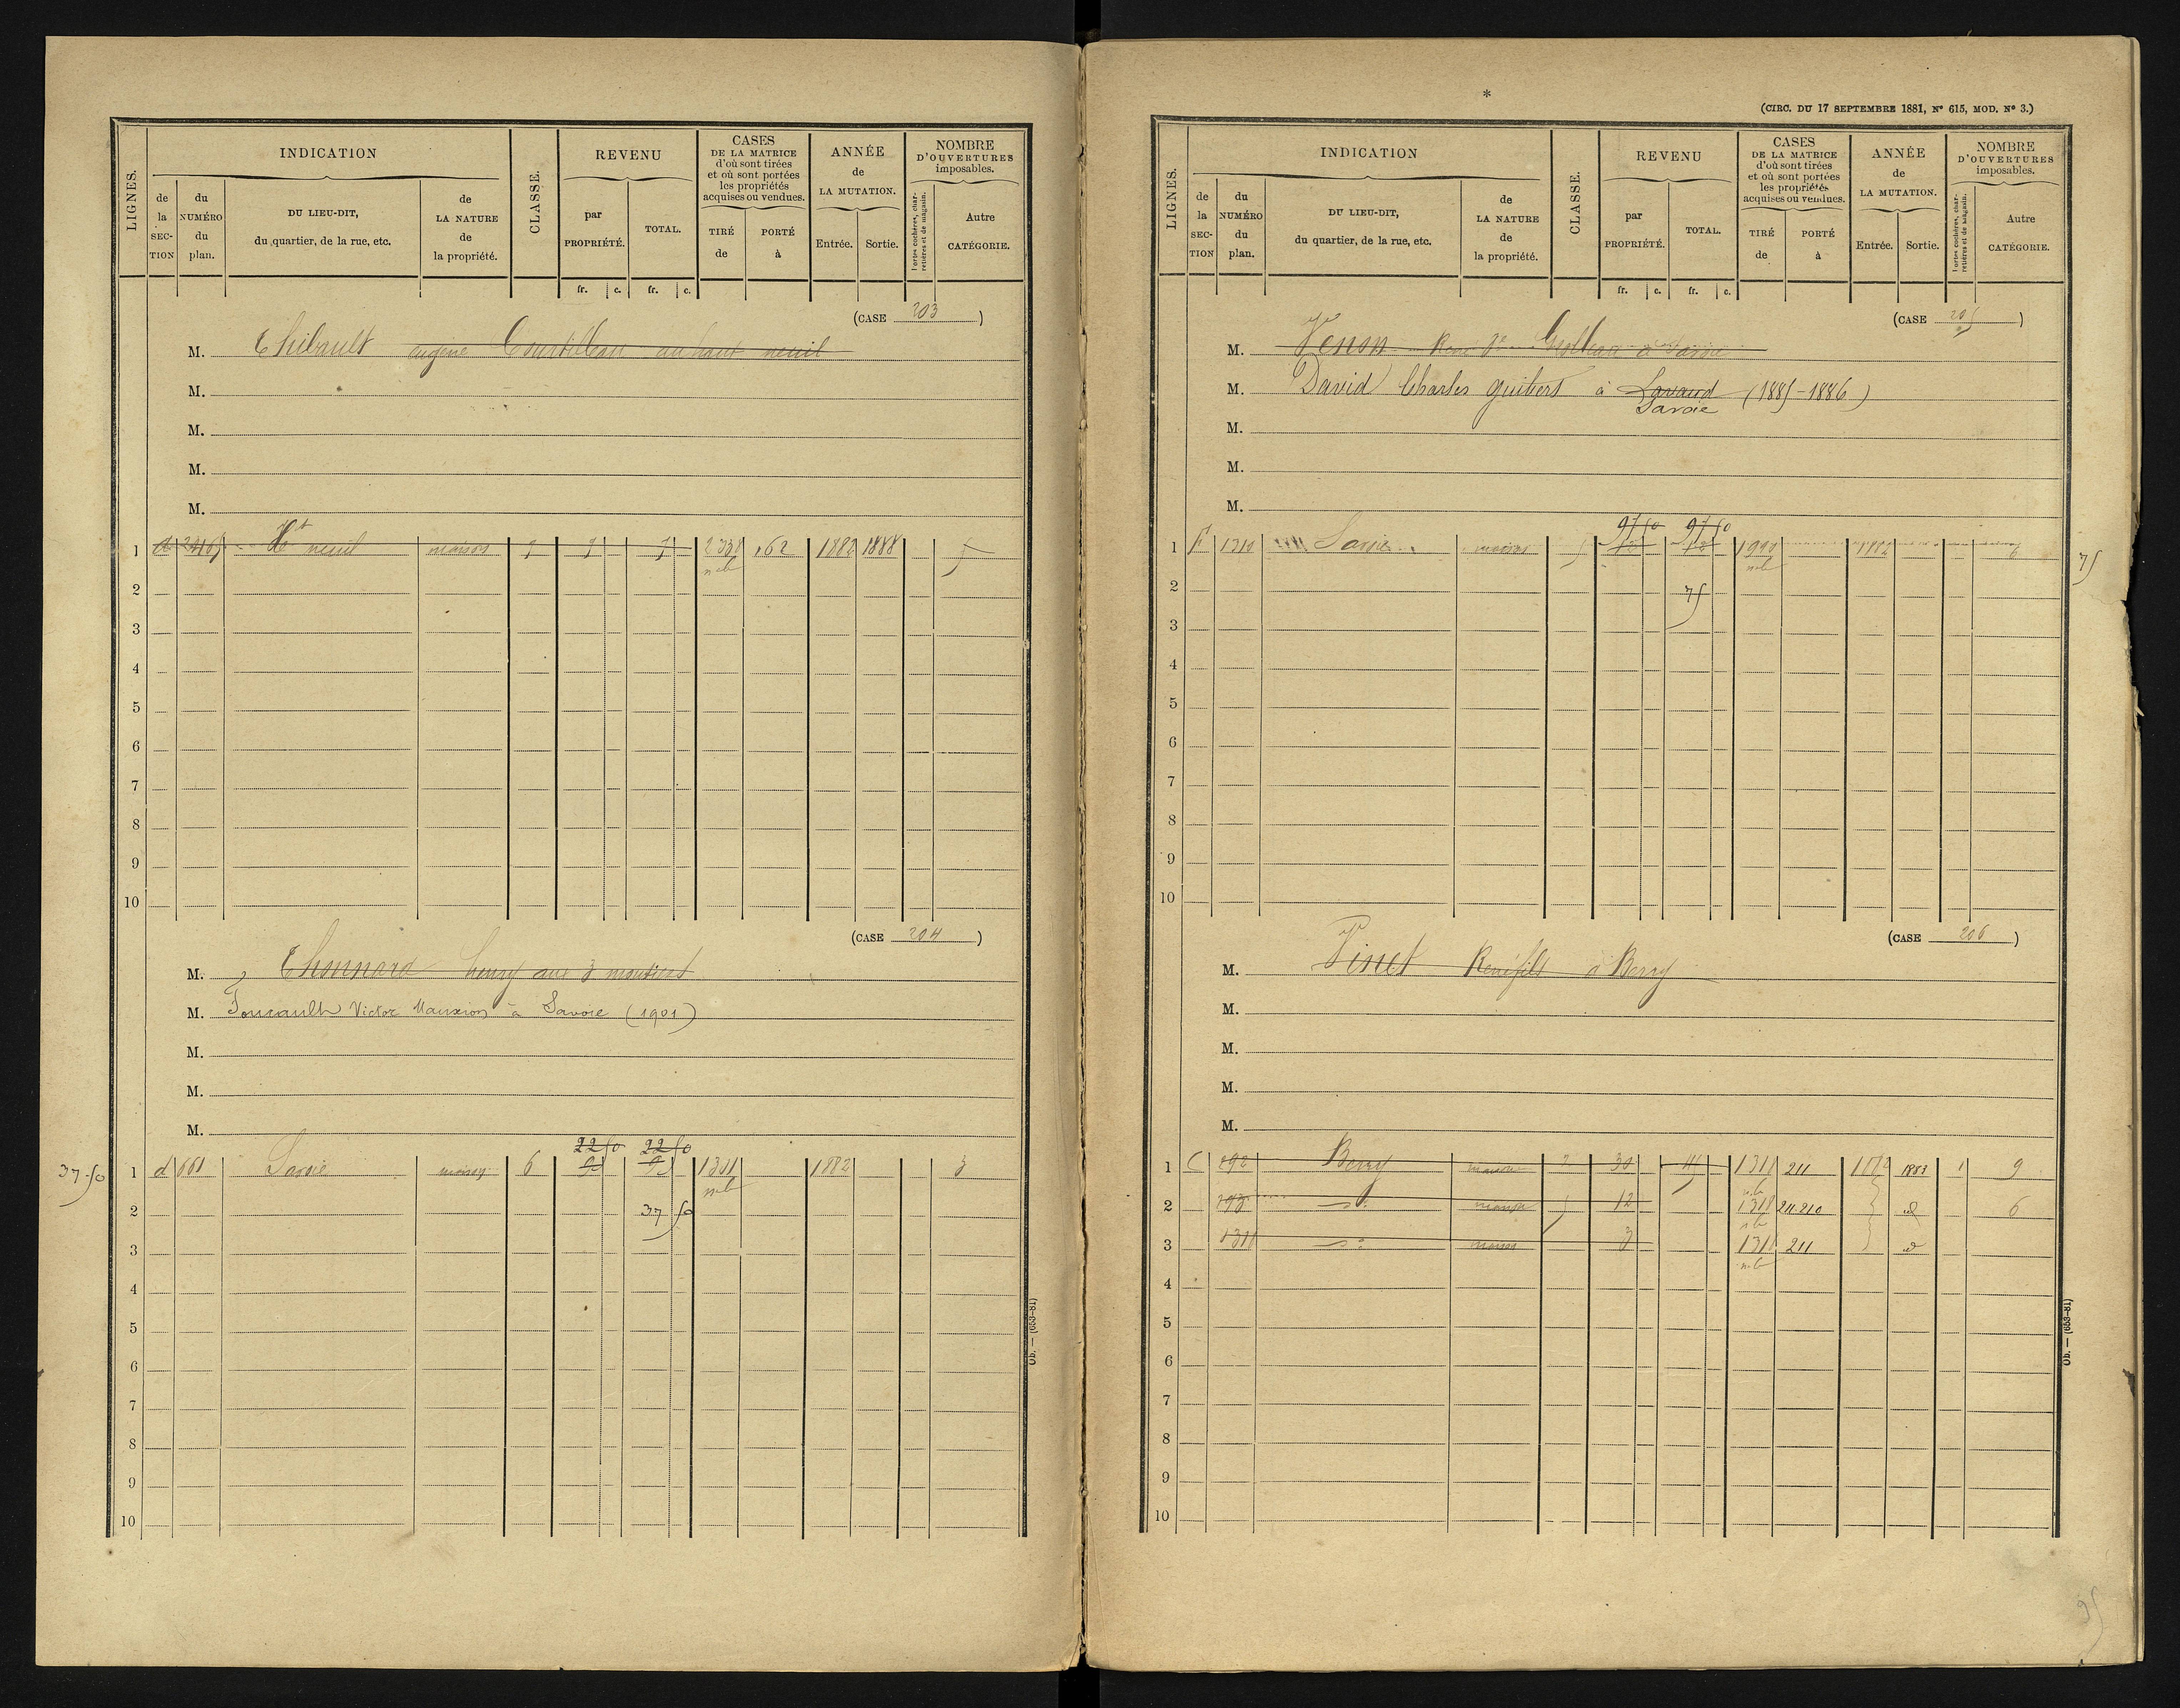 LIGNES.
INDICATION
de la SECTION
du NUMÉRO du plan.
DU LIEU-DIT, du quartier, de la rue, etc.
de LA NATURE de la propriété.
CLASSE.
REVENU
par PROPRIÉTÉ.
TOTAL.
CASES DE LA MATRICE d'où sont tirées et où sont portées les propriétés acquises ou vendues.
TIRÉ de
PORTÉ à
ANNÉE de LA MUTATION.
Entrée. Sortie.
NOMBRE D'OUVERTURES imposables.
Portes cochères, charretières et de magasin.
Autre CATÉGORIE.
fr. c. fr. c.
(CASE 203)
M. Thibault eugène Courtilleau au haut neuil
M.
M.
M.
M.
1 d 2465 Ht neuil maison 7 7 2338 162 1882 1888 5
nb
2
3
4
5
6
7
8
9
10
(CASE 204)
M. Thonnard henry aux 3 moutiers
M. Foucault Victor Mauxion à Savoie (1901)
M.
M.
M.
22 50 22 50
37.50 1 d 661 Savoie maison 6 9 9 1311 1882 3
nb
2 37 50
3
4
5
6
7
8
9
10
Ob. — (653-81)
*
(CIRC. DU 17 SEPTEMBRE 1881, N° 615, MOD. N° 3.)
LIGNES.
INDICATION
de la SECTION
du NUMÉRO du plan.
DU LIEU-DIT, du quartier, de la rue, etc.
de LA NATURE de la propriété.
CLASSE.
REVENU
par PROPRIÉTÉ.
TOTAL.
CASES DE LA MATRICE d'où sont tirées et où sont portées les propriétés acquises ou vendues.
TIRÉ de
PORTÉ à
ANNÉE de LA MUTATION.
Entrée. Sortie.
NOMBRE D'OUVERTURES imposables.
Portes cochères, charretières et de magasin.
Autre CATÉGORIE.
fr. c. fr. c.
(CASE 205)
M. Venon René à Savoie
M. David Charles guibert à Lavaud (1885-1886)
Savoie
M.
M.
M.
97 50 97 50
1 1310 Savoie maison 5 1990 1882
nb
75
2 75
3
4
5
6
7
8
9
10
(CASE 206)
M. Pinet René fils à Berry
M.
M.
M.
M.
1 C 292 Berry maison 2 30 45 1311 211 1882 1883 1 9
nb
2 293 do maison 5 12 1311 211.210 id 6
nb
3 1311 do maison 3 1311 211 id
nb
4
5
6
7
8
9
10
Ob. — (653-81)
95